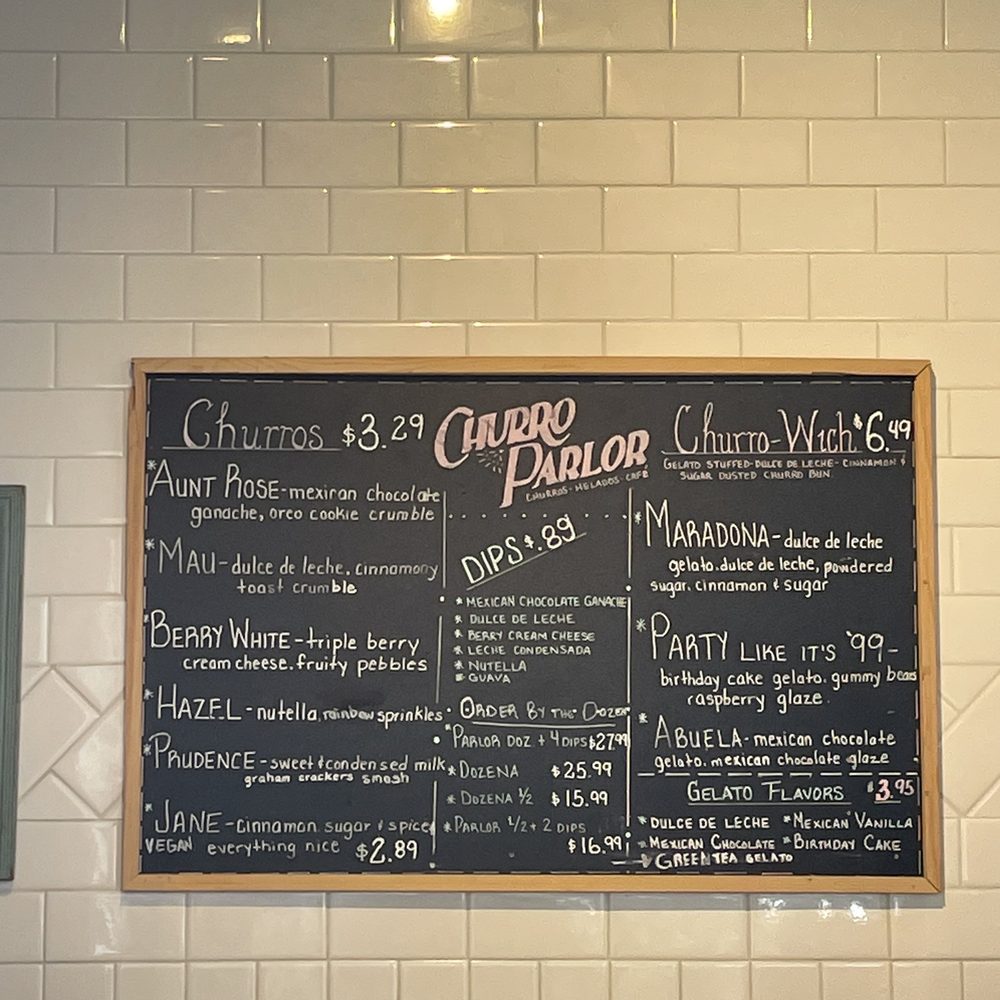 Churros $3.29
*AUNT ROSE-mexican chocolate
ganache, oreo cookie crumble
*MAU-dulce de leche, cinnamony
toast crumble
*BERRY WHITE-triple berry
cream cheese. fruity pebbles
*HAZEL-nutella, rainbow sprinkles
*PRUDENCE-sweet & condensed milk
graham crackers smash
*JANE-cinnamon sugar & spice,
VEGAN everything nice $2.89
CHURRO
PARLOR
CHURROS-HELADOS-CAFE
DIPS $.89
*MEXICAN CHOCOLATE GANACHE
*DULCE DE LECHE
*BERRY CREAM CHEESE
*LECHE CONDENSADA
*NUTELLA
*GUAVA
ORDER BY THE DOZEN
*PARLOR DOZ + 4 DIPS $27.99
*DOZENA $25.99
*DOZENA ½ $15.99
*PARLOR ½ + 2 DIPS
$16.99
Churro-Wich $6.49
GELATO STUFFED-DULCE DE LECHE-CINNAMON &
SUGAR DUSTED CHURRO BUN
*MARADONA-dulce de leche
gelato. dulce de leche, powdered
sugar, cinnamon & sugar
*PARTY LIKE IT'S '99-
birthday cake gelato. gummy bears
raspberry glaze
*ABUELA-mexican chocolate
gelato. mexican chocolate glaze
GELATO FLAVORS $3.95
*DULCE DE LECHE *MEXICAN VANILLA
*MEXICAN CHOCOLATE *BIRTHDAY CAKE
GREEN TEA GELATO